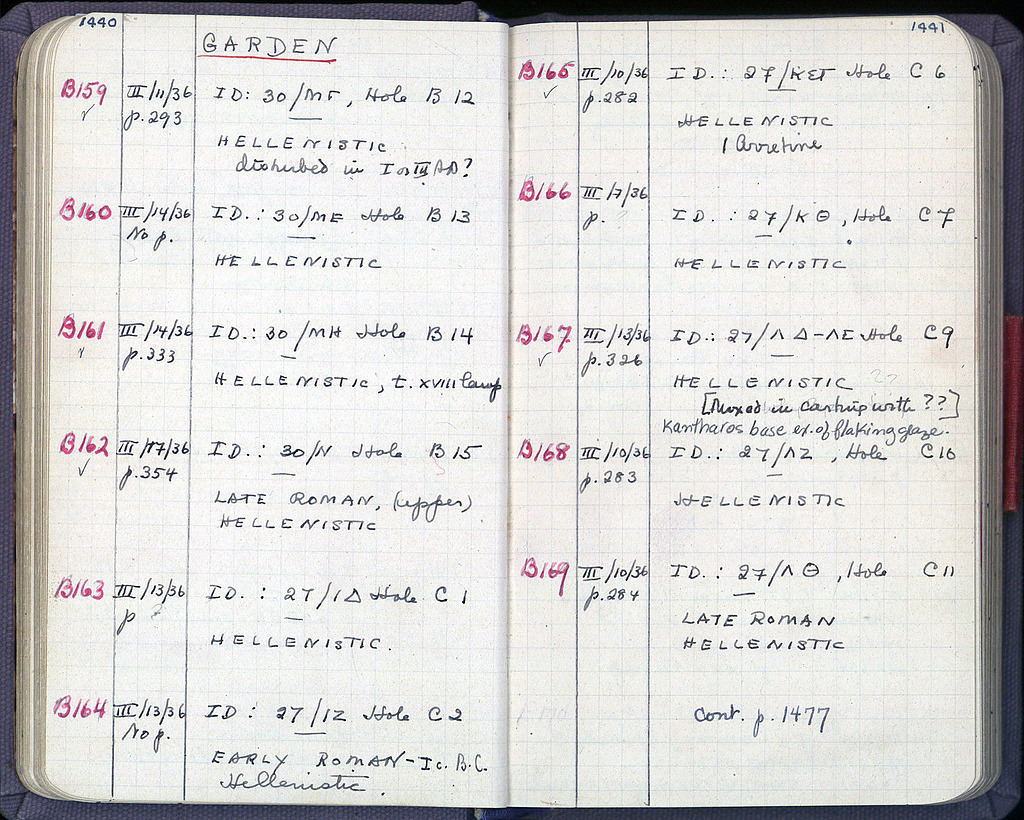 1440
GARDEN
B159 III/11/36 ID: 30/ΜΓ, Hole B 12
✓ p.293
HELLENISTIC
disturbed in I or III AD?
B160 III/14/36 ID.: 30/ΜΕ Hole B 13
No p.
HELLENISTIC
B161 III/14/36 ID.: 30/ΜΗ Hole B 14
✓ p.333
HELLENISTIC, t. XVIII lamp
B162 III/17/36 ID.: 30/Ν Hole B 15
✓ p.354
LATE ROMAN, (upper)
HELLENISTIC
B163 III/13/36 ID.: 27/ΙΔ Hole C 1
p ?
HELLENISTIC.
B164 III/13/36 ID: 27/ΙΖ Hole C 2
No p.
EARLY ROMAN - I c. B.C.
Hellenistic.
1441
B165 III/10/36 ID.: 27/ΚΣΤ Hole C 6
✓ p.282
HELLENISTIC
1 Arretine
B166 III/7/36
p. ?
ID.: 27/ΚΘ, Hole C 7
HELLENISTIC
B167 III/13/36 ID.: 27/ΛΔ-ΛΕ Hole C 9
✓ p.326
HELLENISTIC ??
[Mixed in casting with ??]
Kantharos base ex. of flaking glaze.
B168 III/10/36 ID.: 27/ΛΖ, Hole C 10
p.283
HELLENISTIC
B169 III/10/36 ID.: 27/ΛΘ, Hole C 11
p.284
LATE ROMAN
HELLENISTIC
Cont. p. 1477